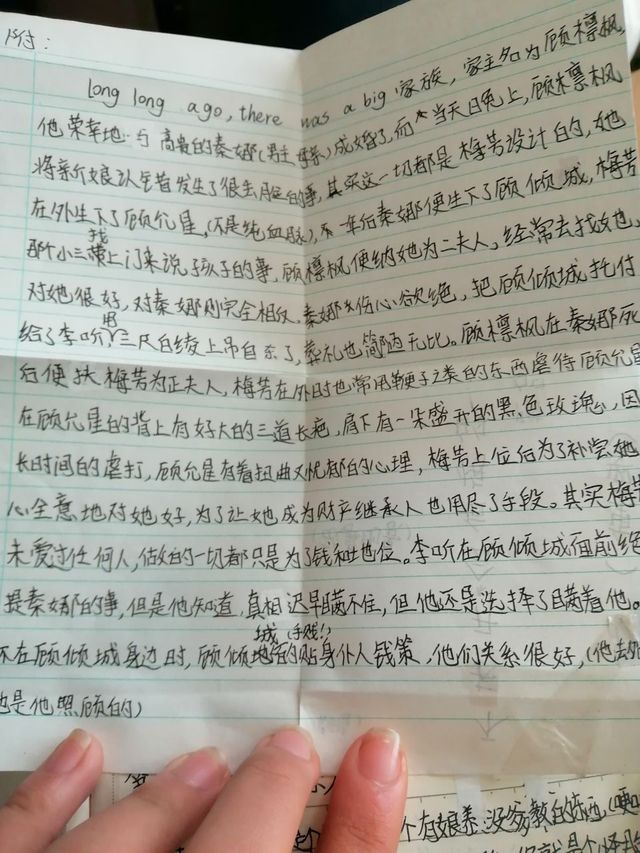 附：
long long ago, there was a big 家族，家主名为顾檩枫，
他荣幸地与高贵的秦娜(男主母亲)成婚了，而当天日免上，顾檩枫
将新娘认错发生了很去脸的事，其实这一切都是梅芳设计的，她
在外生下了顾允星，(不是纯血脉)，一年后秦娜便生下了顾倾城，梅芳
那个小三找上门来说孩子的事，顾檩枫便纳她为二夫人，经常去找她，
对她很好，对秦娜则完全相反，秦娜伤心欲绝，把顾倾城托付
给了李听，用三尺白绫上吊自杀了，葬礼也简陋无比。顾檩枫在秦娜死
后便扶梅芳为正夫人，梅芳在外时也常用鞭子之类的东西虐待顾允星
在顾允星的背上有好大的三道长疤，肩下有一朵盛开的黑色玫瑰，因
长时间的虐打，顾允星有着扭曲又忧郁的心理，梅芳上位后为了补尝她
心全意地对她好，为了让她成为财产继承人也用尽了手段。其实梅芳
未爱过任何人，做的一切都只是为了钱和地位。李听在顾倾城面前绝
提秦娜的事，但是他知道，真相迟早瞒不住，但他还是选择了瞒着他。
不在顾倾城身边时，顾倾城(手贱!)的贴身仆人钱策，他们关系很好，(他去外
也是他照顾的)
个有娘养没爹教的东西，